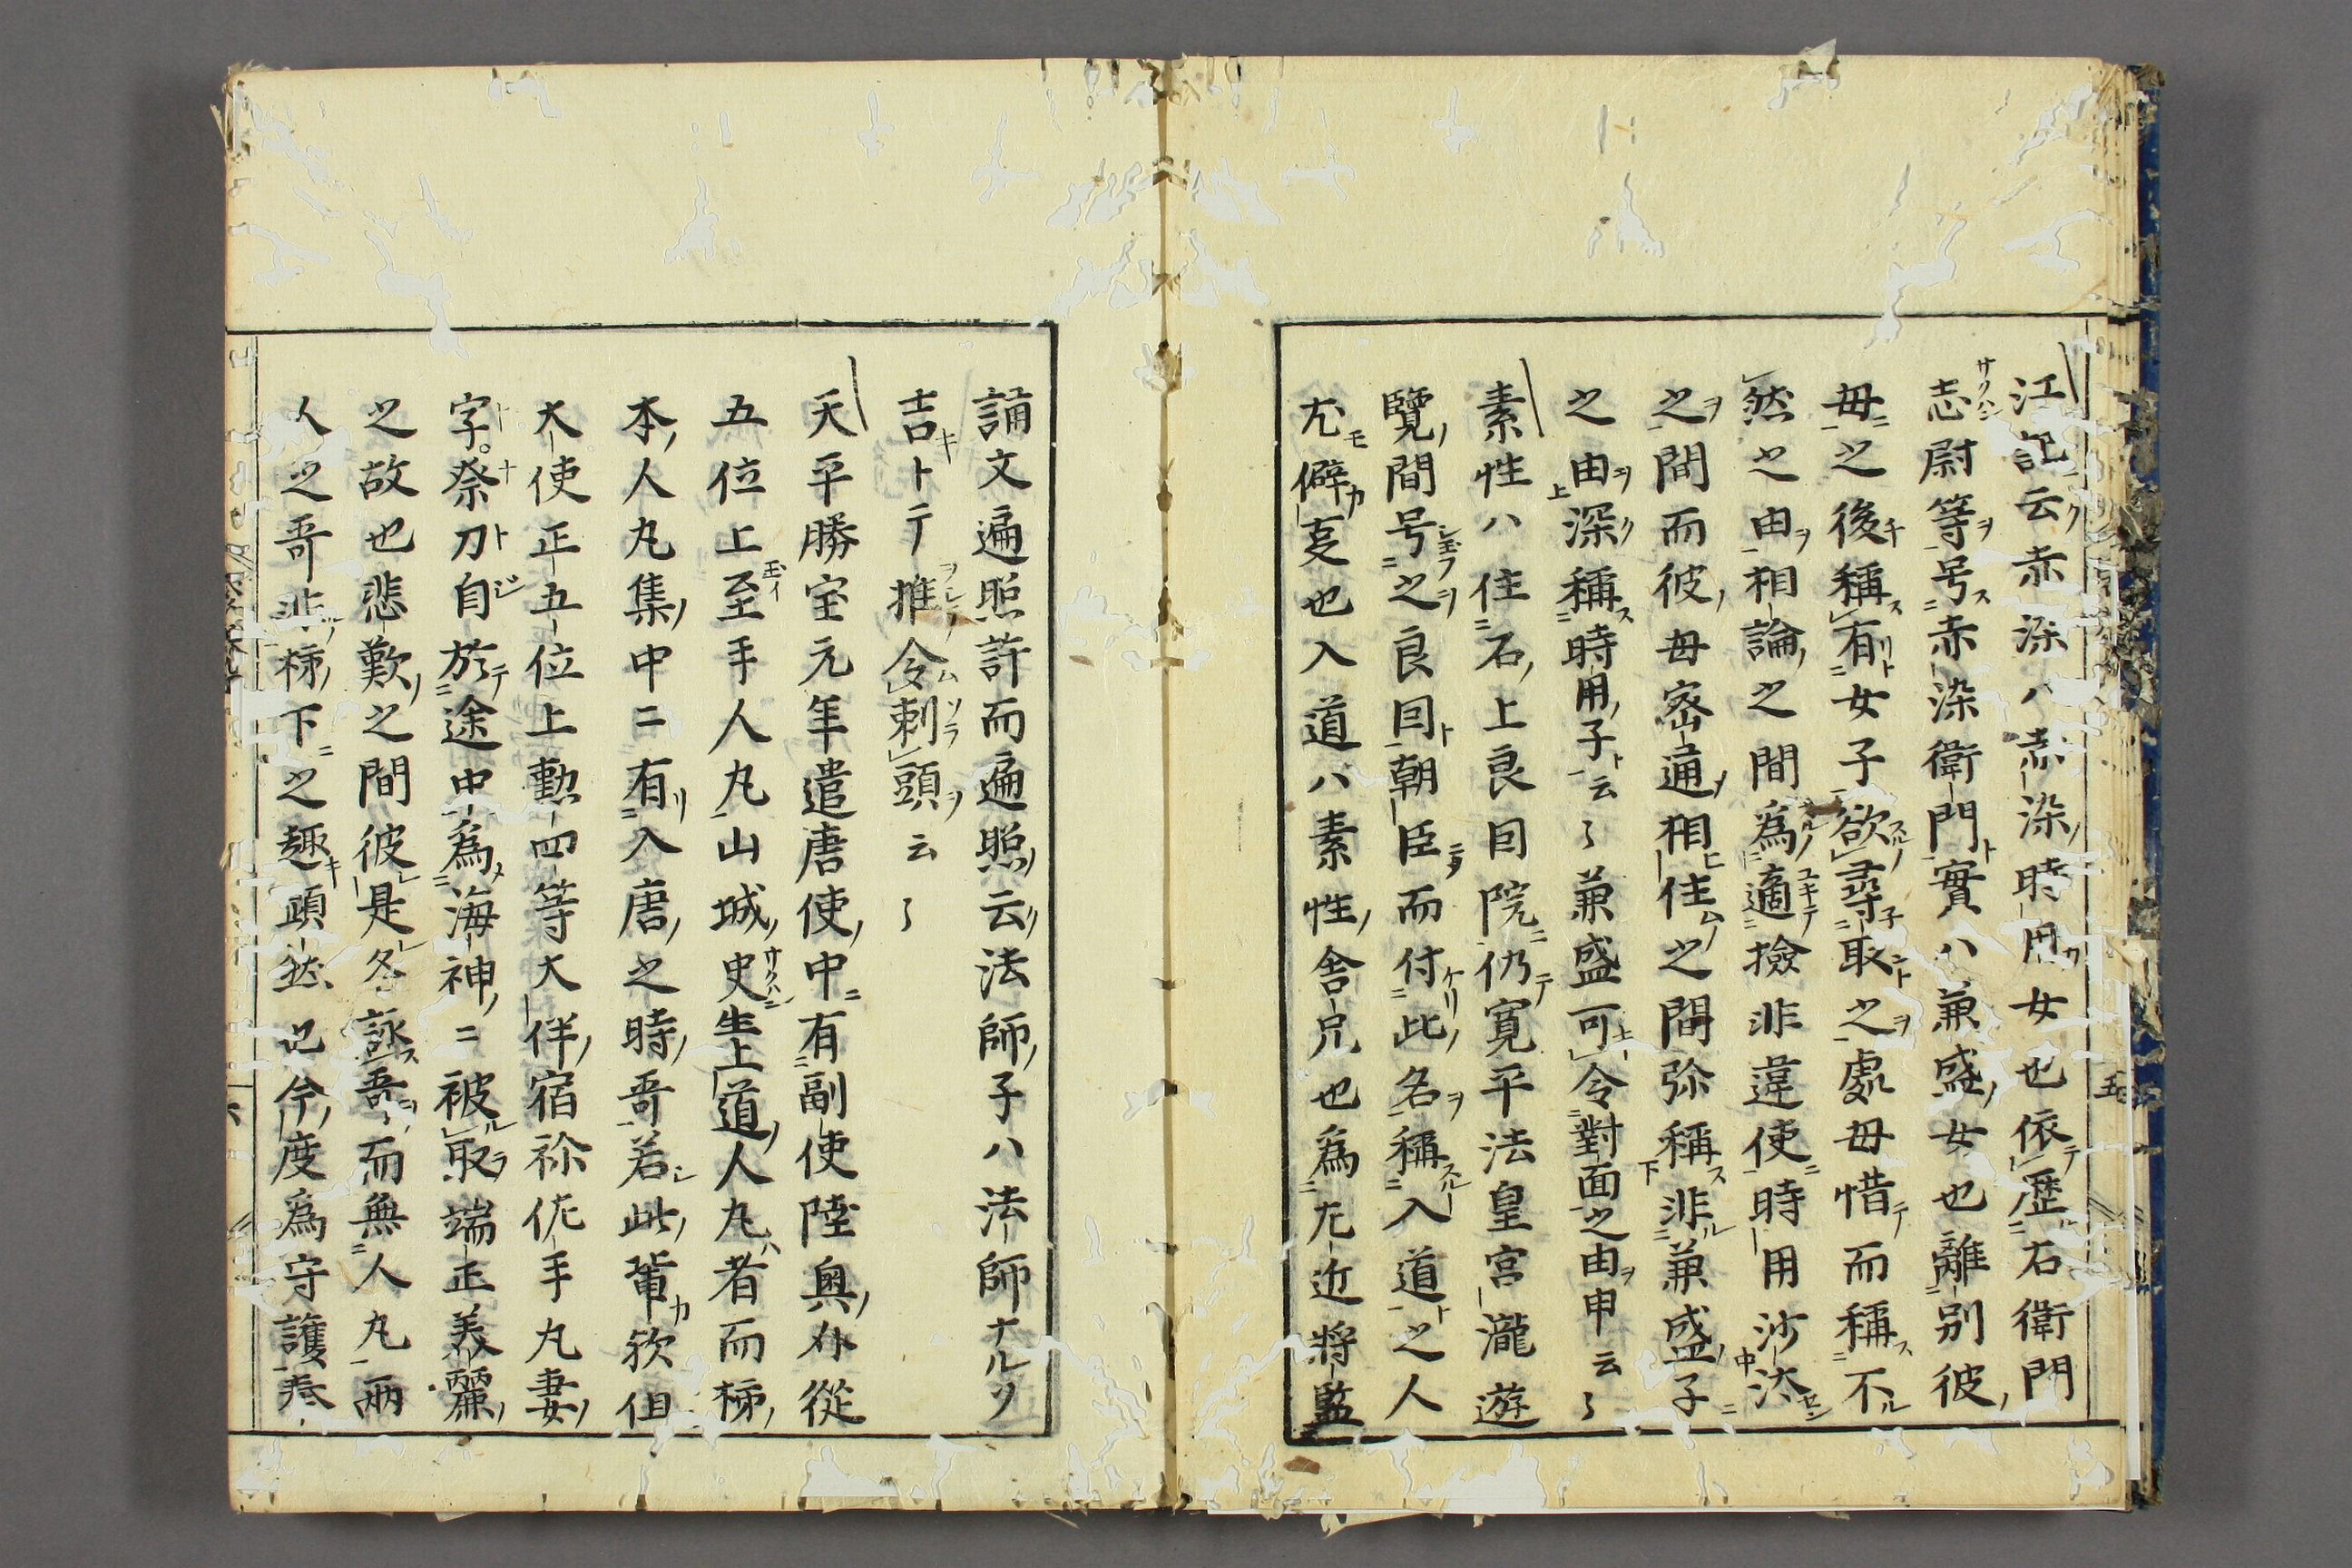 江記云赤染ハ赤染時用女也依歴右衛門
志尉等号赤染衛門實ハ兼盛女也離別彼
毋之後稱有女子欲尋取之處毋惜而稱不
然之由相論之間為適撿非違使時用沙汰
之間而彼毋密通相住之間弥稱非兼盛子
之由深稱時用子云々兼盛可令對面之由申云々
素性ハ住石上良因院仍寛平法皇宮瀧遊
覽間号之良因朝臣而付此名稱入道之人
尤僻亊也入道ハ素性舎兄也為左近將監
誦文遍照許而遍照云法師子ハ法師ナルソ
吉トテ推令剃頭云々
天平勝宝元年遣唐使中有副使陸奥介從
五位上玉手人丸山城史生上道人丸者而柹
本人丸集中ニ有入唐之時哥若此軰欤但
大使正五位上勲四等大伴宿祢佐手丸妻
字祭刀自於途中為海神ニ被取端正美麗
之故也悲歎之間彼是各詠吾而無人丸兩
人之哥非柹下之趣頭然已今度為守護